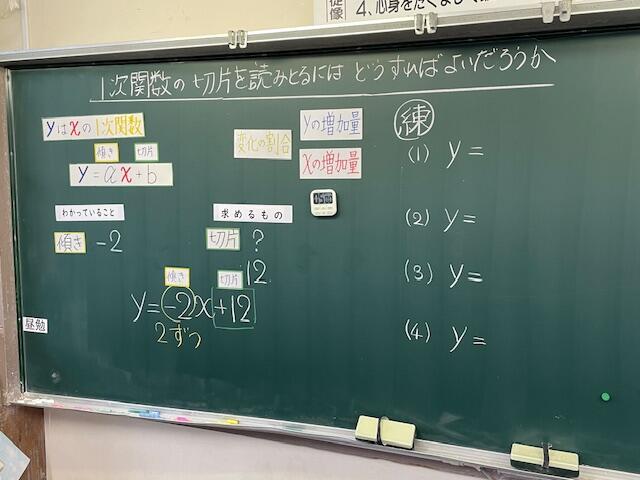 4、心身を
1次関数の切片を読みとるには どうすればよいだろうか
yはxの1次関数
傾き 切片
y=ax+b
変化の割合
yの増加量
xの増加量
わかっていること
傾き -2
求めるもの
切片 ?
12
傾き 切片
y=-2x+12
2ずつ
昼勉
05:00
練
(1) y=
(2) y=
(3) y=
(4) y=